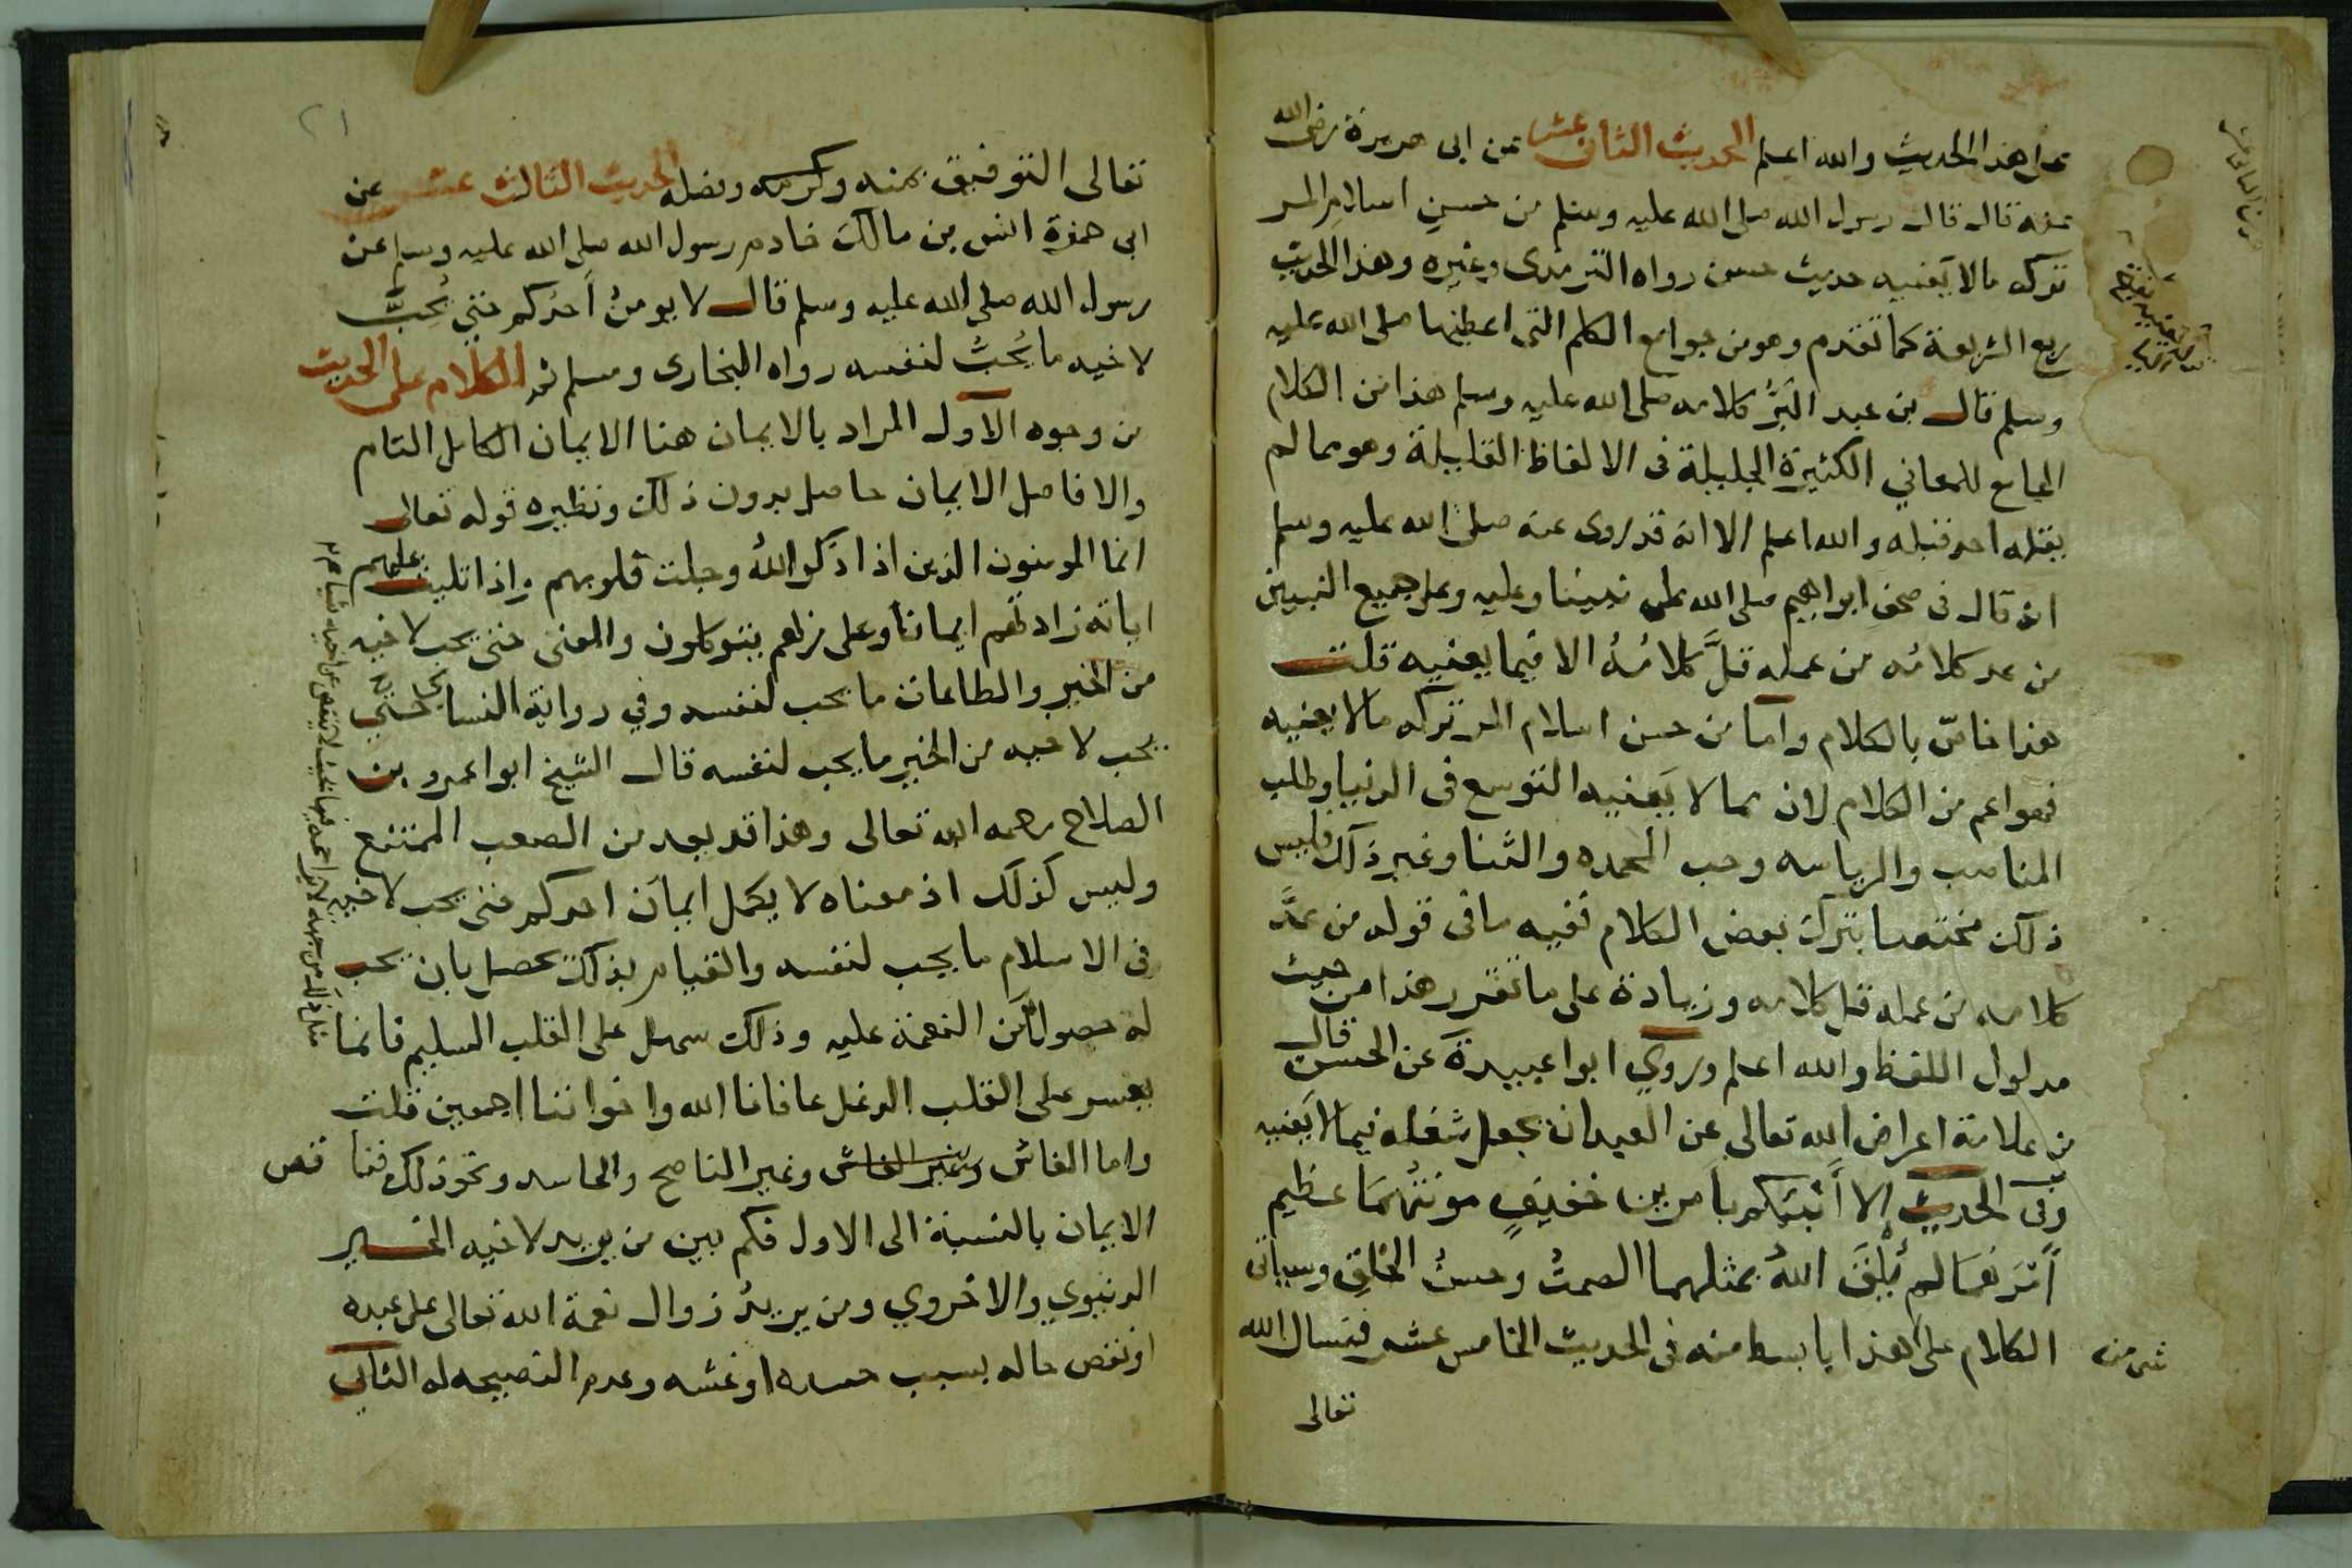 على هذا الحديث والله اعلم الحديث الثانى عشر عن ابى هريرة رضى الله
عنه قال قال رسول الله صلى الله عليه وسلم من حسن اسلام المر
تركه مالا يعنيه حديث حسن رواه الترمذى وغيره وهذا الحديث
ربع الشريعة كما تقدم وهو من جوامع الكلم التى اعطيها صلى الله عليه
وسلم قال بن عبد البَرِّ كلامه صلى الله عليه وسلم هذا من الكلام
الجامع للمعاني الكثيرة الجليلة فى الالفاظ القليلة وهو مما لم
يقله احد قبله والله اعلم الا انه قد روى عنه صلى الله عليه وسلم
انه قال فى صحف ابراهيم صلى الله على نبينا وعليه وعلى جميع النبيين
من عد كلامُه من عمله قلَّ كلامُهُ الا فيما يعنيه قلت
هذا خاصّ بالكلام واما من حسن اسلام المر تركه مالا يعنيه
فهو اعم من الكلام لان مما لا يَعنيه التوسع فى الدنيا وطلب
المناصب والرياسه وحب المحمده والثنا وغير ذلك فليس
ذلك مختصا بترك بعض الكلام ففيه ما فى قوله من عدَّ
كلامه من عمله قل كلامه وزيادة على ما تقرر هذا من حيث
مدلول اللفظ والله اعلم وروي ابوا عبيدة عن الحسن قال
من علامة اعراض الله تعالى عن العبد ان يجعل شغله فيما لا يَعنيه
وفى الحديث الا أُنَبّئكم بامرين خفيفٍ مونتُهمَا عظيم
أَثرهمَا لم يُلْقَ اللهُ بمثلهما الصمتُ وحسنُ الخلقِ وسياتى
شى من الكلام على هذا بابسط منه فى الحديث الخامس عشر فنسال الله
تعالى
٢١
تعالى التوفيق بمنه وكرمه وفضله الحديث الثالث عشر عن
ابى حمزة انس بن مالك خادم رسول الله صلى الله عليه وسلم عن
رسول الله صلى الله عليه وسلم قال لا يومنُ أحدُكم حتى يُحِبَّ
لاخيه ما يُحبُّ لنفسه رواه البخارى ومسلم ثم الكلام على الحديث
من وجوه الاول المراد بالايمان هنا الايمان الكامل التام
والا فاصل الايمان حاصل بدون ذلك ونظيره قوله تعالى
انما المومنون الذين اذا ذكر اللهُ وجلت قلوبهم واذا تليت عليهم
اياته زادتهم ايمانا وعلى ربهم يتوكلون والمعنى حتى يحب لاخيه
من الخير والطاعات ما يحب لنفسه وفي رواية النساى حتى
يحب لاخيه من الخير ما يحب لنفسه قال الشيخ ابوا عمرو بن
الصلاح رحمه الله تعالى وهذا قد يعد من الصعب الممتنع
وليس كذلك اذ معناه لا يكمل ايمان احدكم حتى يحب لاخيه
فى الاسلام ما يحب لنفسه والقيام بذلك يحصل بان يحب
له حصول من النعمة عليه وذلك سهل على القلب السليم فانما
يعسر على القلب الدغل عافانا الله واخواننا اجمعين قلت
واما الغاش وغير الغاش وغير الناصح والحاسد ونحو ذلك فنا قص
الايمان بالنسبة الى الاول فكم بين من يريد لاخيه الخير
الدنيوي والاخروي ومن يريدُ زوال نعمة الله تعالى على عبده
او نقص حاله بسبب حسده او غشه وعدم النصيحه له الثاني
مثل ذلك من جهة لا يزاحمه فيها بحيث لا ينقص على اخيه شيا